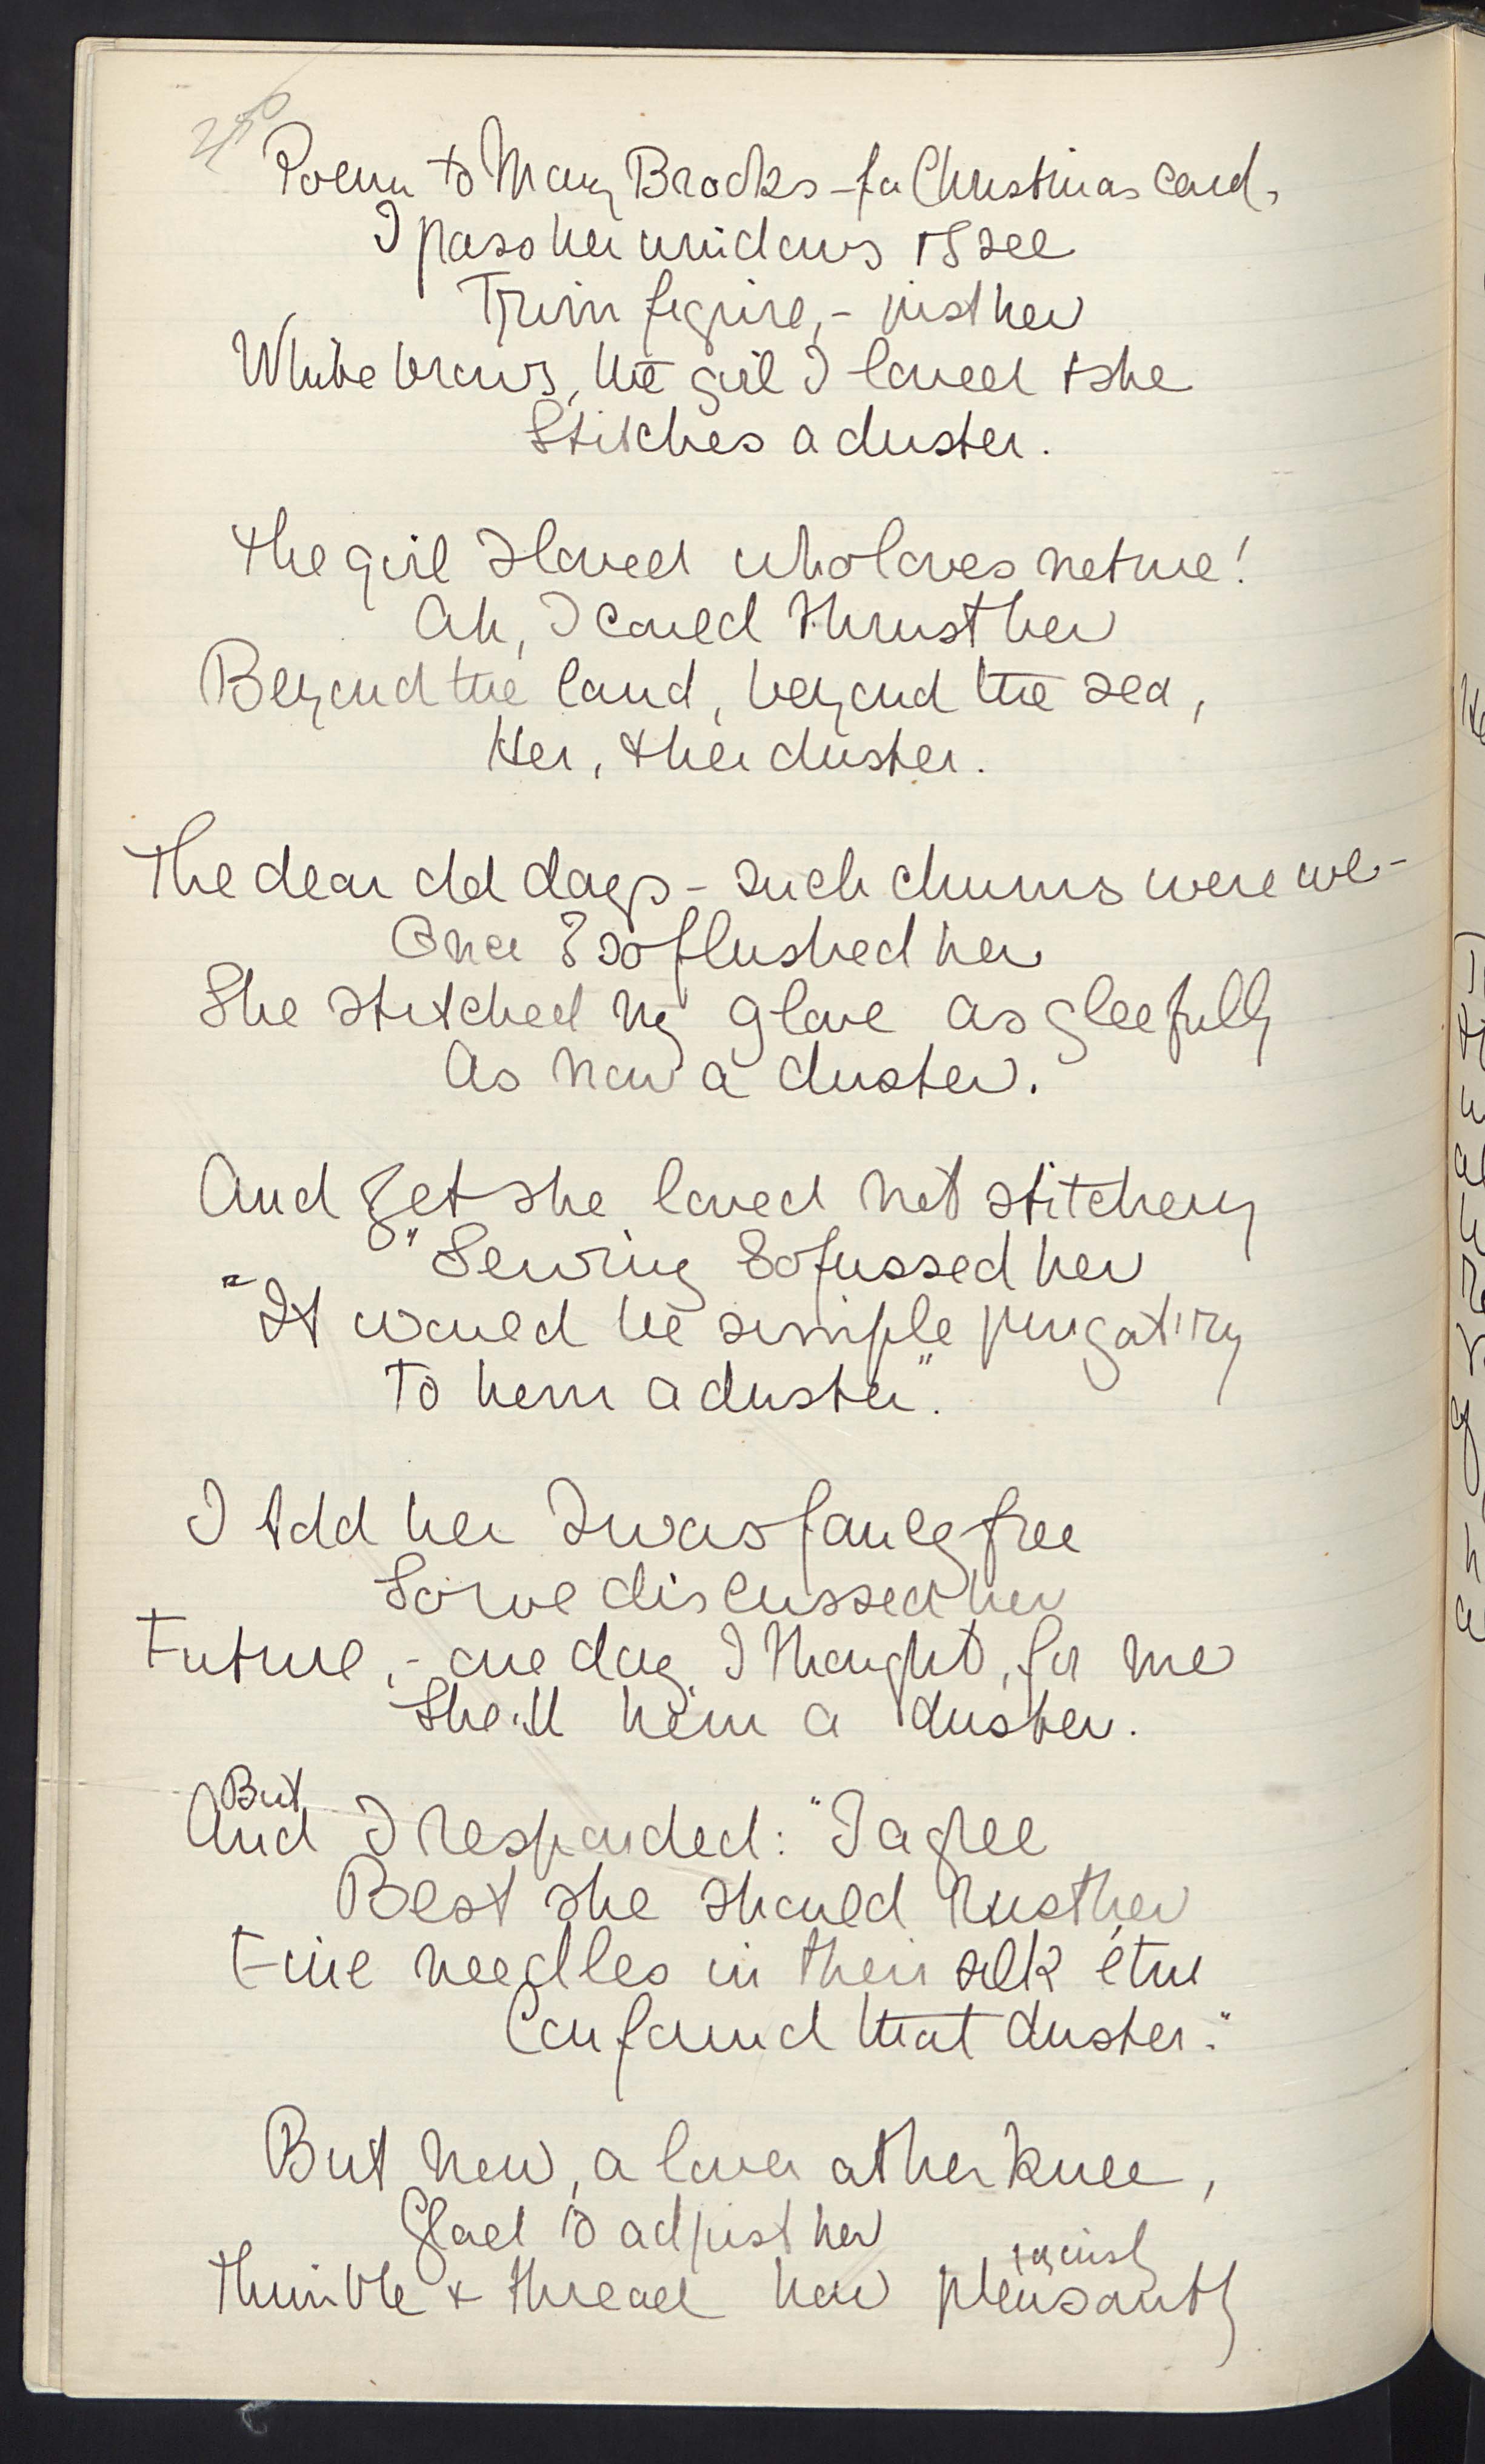 250
Poem to Mary Brooks - for Christmas card.
I pass her windows & I see
Trim figure, - just her
White brows, the girl I loved & she
Stitches a duster.
The girl I loved who loves not me!
Ah, I could thrust her
Beyond the land, beyond the sea,
Her, & her duster.
The dear old days - such chums were we -
Once I so flushed her
She stitched my glove as gleefully
As now a duster.
And yet she loved not stitchery
"Sewing so fussed her
"It would be simple purgatory
To hem a duster".
I told her I was fancy free
So we discussed her
Future, - one day, I thought, for me
She'll hem a duster.
But
And I responded: "I agree
Best she should rust her
Fine needles in their silk étui
Confound that duster."
But now, a lover at her knee,
Glad to adjust her
Thimble & thread how pleasantly